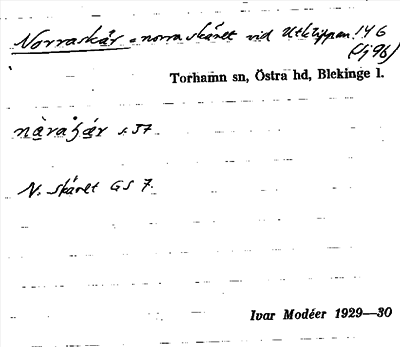 Norraskär = norra skäret vid Utklippan 146
(Sj 96)
Torhamn sn, Östra hd, Blekinge l.
s. 57
N. skäret GS 7.
Ivar Modéer 1929—30